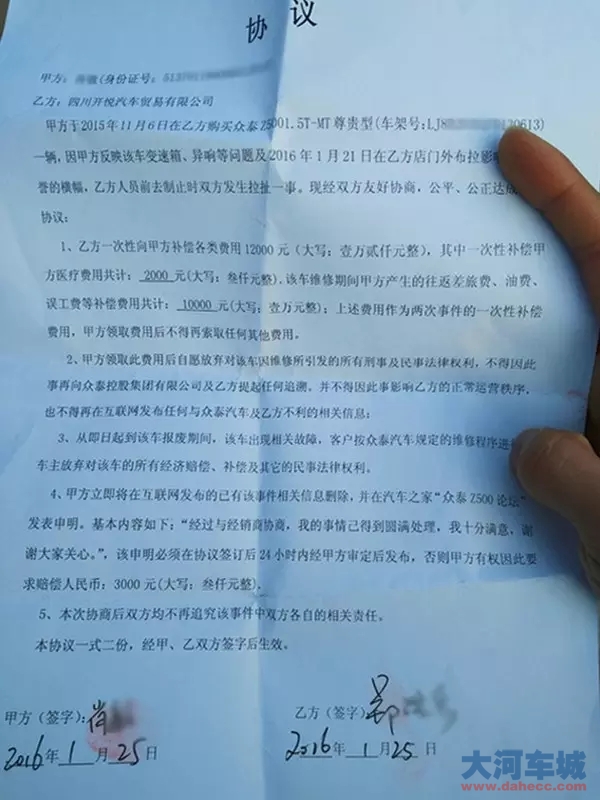 协议
甲方:(身份证号:
乙方:四川开悦汽车贸易有限公司
甲方于2015年11月6日在乙方购买众泰Z5001.5T-MT尊贵型(车架号:LJ8 130613)
一辆,因甲方反映该车变速箱、异响等问题及2016年1月21日在乙方店门外布拉影
誉的横幅,乙方人员前去制止时双方发生拉扯一事。现经双方友好协商,公平、公正达成
协议:
1、乙方一次性向甲方补偿各类费用12000元(大写:壹万贰仟元整),其中一次性补偿甲
方医疗费用共计:2000元(大写:叁仟元整).该车维修期间甲方产生的往返差旅费、油费、
误工费等补偿费用共计:10000元(大写:壹万元整);上述费用作为两次事件的一次性补偿
费用,甲方领取费用后不得再索取任何其他费用。
2、甲方领取此费用后自愿放弃对该车因维修所引发的所有刑事及民事法律权利,不得因此
事再向众泰控股集团有限公司及乙方提起任何追溯。并不得因此事影响乙方的正常运营秩序.
也不得再在互联网发布任何与众泰汽车及乙方不利的相关信息;
3、从即日起到该车报废期间,该车出现相关故障,客户按众泰汽车规定的维修程序进
车主放弃对该车的所有经济赔偿、补偿及其它的民事法律权利。
4、甲方立即将在互联网发布的已有该事件相关信息删除,并在汽车之家“众泰Z500论坛”
发表申明。基本内容如下:“经过与经销商协商,我的事情己得到圆满处理,我十分满意,谢
谢大家关心。”,该申明必须在协议签订后24小时内经甲方审定后发布,否则甲方有权因此要
求赔偿人民币:3000元(大写:叁仟元整).
5、本次协商后双方均不再追究该事件中双方各自的相关责任。
本协议一式二份,经甲、乙双方签字后生效。
甲方(签字):肖
乙方(签字):郑
2016年1月25日
2016年1月25日
大河车城
www.dahecc.com